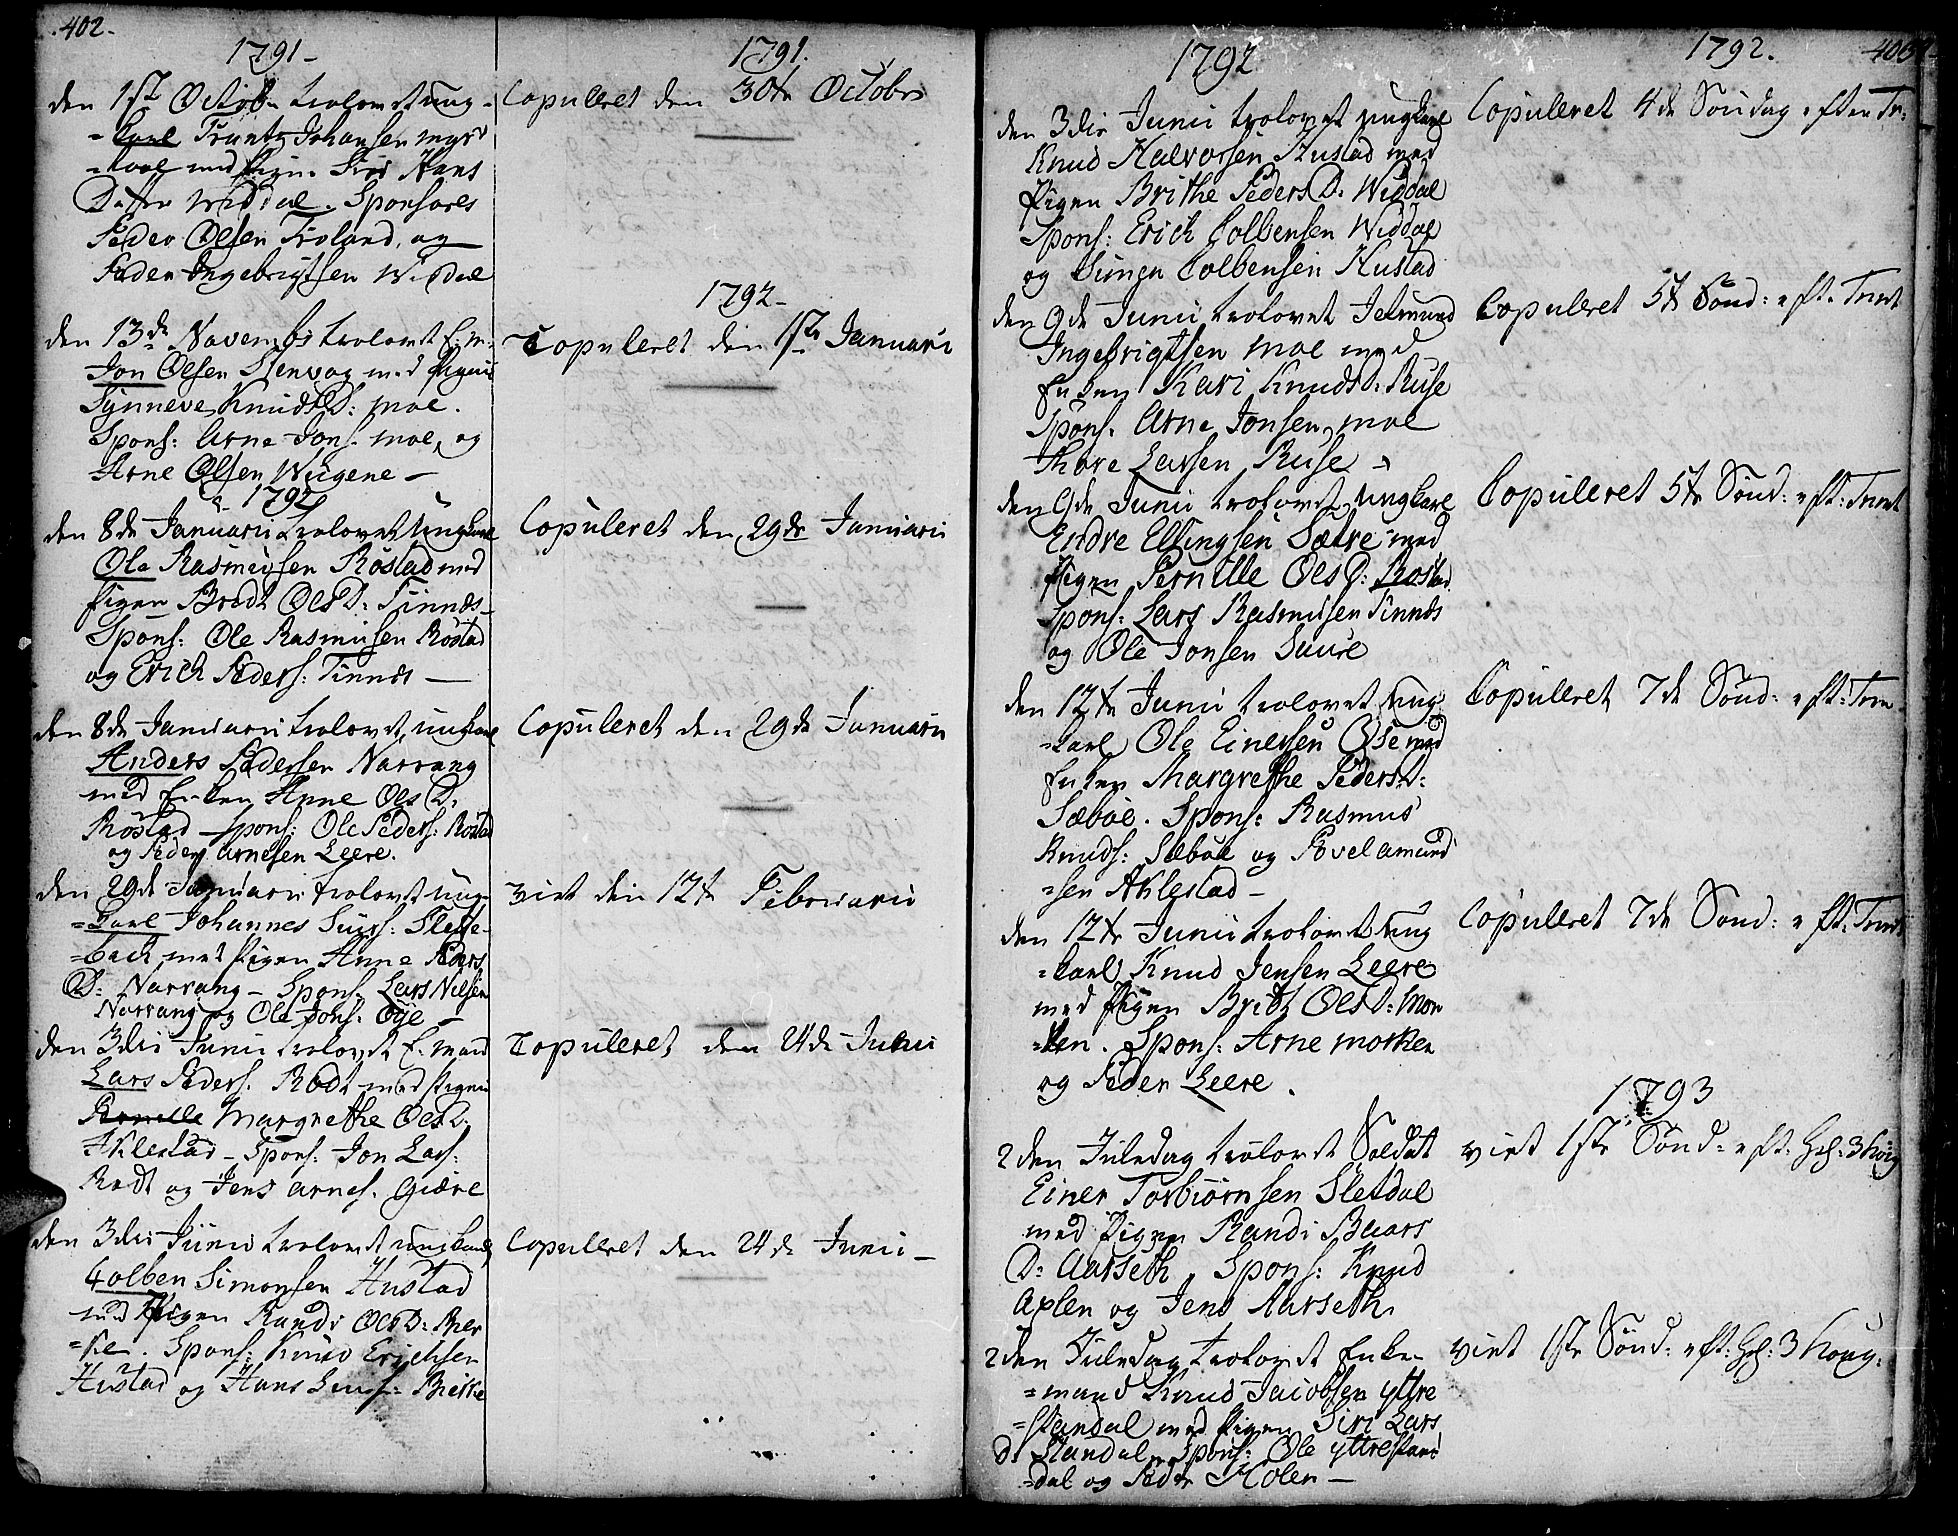 402.
1791
den 1ste Octob. trolovet ung-
=karl Frantz Johansen myr
med Pigen Hans
Datter Widdal. Sponsores
Peder Olsen Froland, og
Peder Ingebrigtsen Widdal
den 13de Novembr trolovet E: m:
Jon Olsen Stenvog med Pigen
Synneve Knuds D: moe.
Spons: Arne Jons. moe, og
Arne Olsen Wügene —
1792
den 8de Januarii trolovet ungkarl
Ole Rasmusen Röstad med
Pigen Bredt Ols D: Tinnds
Spons: Ole Rasmusen Röstad
og Erich Peders: Tinnds —
den 8de Januarii trolovet ungkarl
Anders Pedersen Narvang
med Enken Anne Ols D:
Röstad — Spons: Ole Peders: Röstad
og Peder Arnesen Leere.
den 29de Januarii trolovet ung-
=karl Johannes Siurs: Slette-
=back med Pigen Anne Peders
D: Narvang — Spons: Lars Nilsen
Narvang og Ole Jons: Öye —
den 3die Junii trolovet E. mand
Lars Peders. Rödt med Pigen
Pernille Margrethe Ols D.
Aklestad — Spons: Jon Lars:
Rödt og Jens Arnes. Giære
den 3die Junii trolovet ungkarl
Colben Simonsen Hustad
med Pigen Randi Ols D: Bier
=ke. Spons: Knud Erichsen
Hustad og Hans Beike
1791.
Copuleret den 30te Octobris
1792 —
Copuleret den 1ste Januarii
Copuleret den 29de Januarii
Copuleret den 29de Januarii
viet den 12te Februarii
Copuleret den 24de Junii
Copulleret den 24de Junii —
1792
den 3die Junii trolovet ungkarl
Knud Halvorsen Hustad med
Pigen Brithe Peders D: Widdal
Spons: Erich Colbensen Widdal
og Simen Colbensen Hustad
den 9de Junii trolovet Jetmund
Ingebrigtsen moe med
Enken Kari Knuds D: Ruse
Spons. Arne Jonsen moe
Thore Larsen Ruse —
den 9de Junii trolovet ungkarl
Endre Ellingsen Sætre med
Pigen Pernille Ols D: Rostad
Spons: Lars Rasmusen Tinnds
og Ole Jonsen Suure
den 12te Junii trolovet ung-
=karl Ole Einersen Ose med
Enken Margrethe Peders D:
Sæböe. Spons: Rasmus
Knuds: Sæböe og Povel amund
=sen Aklestad —
den 12te Junii trolovet ung
=karl Knud Jensen Leere
med Pigen Bredt Ols D: Mor
=ken. Spons: Arne morken
og Peder Leere.
2den Juledag trolovet Soldat
Einer Torbiørnsen Sletdal
med Pigen Randi Baars
D: Aarseth, Spons: Knud
Axlen og Jens Aarseth.
2den Juledag trolovet Enke-
=mand Knud Jacobsen yttre
=standal med Pigen Siri Lars
D: Standal, Spons: Ole yttrestan
=dal og Peder Holen —
1792.
Copuleret 4de Söndag efter Tr:
Copuleret 5te Sönd: eft. Trinit
Copuleret 5te Sönd: eft: Trinit
Copuleret 7de Sönd: eft: Trin
Copuleret 7de Sönd: eft: Trinit
1793
viet 1ste Sönd: eft: Hel: 3 Kong
viet 1ste Sönd: eft: Hel: 3 Kong: